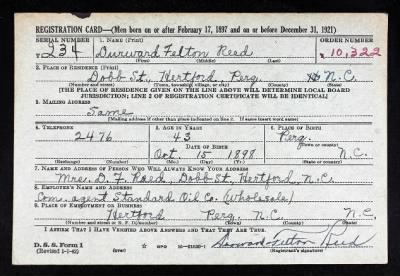 REGISTRATION CARD—(Men born on or after February 17, 1897 and on or before December 31, 1921)
SERIAL NUMBER 1. NAME (Print) ORDER NUMBER
T 234 Durward Felton Reed 10,322
(First) (Middle) (Last)
2. PLACE OF RESIDENCE (Print)
Dobb St., Hertford, Perq. N.C.
(Number and street) (Town, township, village, or city) (County) (State)
[THE PLACE OF RESIDENCE GIVEN ON THE LINE ABOVE WILL DETERMINE LOCAL BOARD
JURISDICTION; LINE 2 OF REGISTRATION CERTIFICATE WILL BE IDENTICAL]
3. MAILING ADDRESS
Same
(Mailing address if other than place indicated on line 2. If same insert word same)
4. TELEPHONE 5. AGE IN YEARS 6. PLACE OF BIRTH
2476 43 Perq.
DATE OF BIRTH (Town or county)
Oct. 15 1898 N.C.
(Exchange) (Number) (Mo.) (Day) (Yr.) (State or country)
7. NAME AND ADDRESS OF PERSON WHO WILL ALWAYS KNOW YOUR ADDRESS
Mrs. D. F. Reed, Dobb St., Hertford, N.C.
8. EMPLOYER'S NAME AND ADDRESS
Com. agent Standard Oil Co. (wholesale)
9. PLACE OF EMPLOYMENT OR BUSINESS
Hertford Perq. N.C. N.C.
(Number and street or R. F. D. number) (Town) (County) (State)
I AFFIRM THAT I HAVE VERIFIED ABOVE ANSWERS AND THAT THEY ARE TRUE.
D. S. S. Form 1
(Revised 1-1-42) (over) GPO Durward Felton Reed
(Registrant's signature)